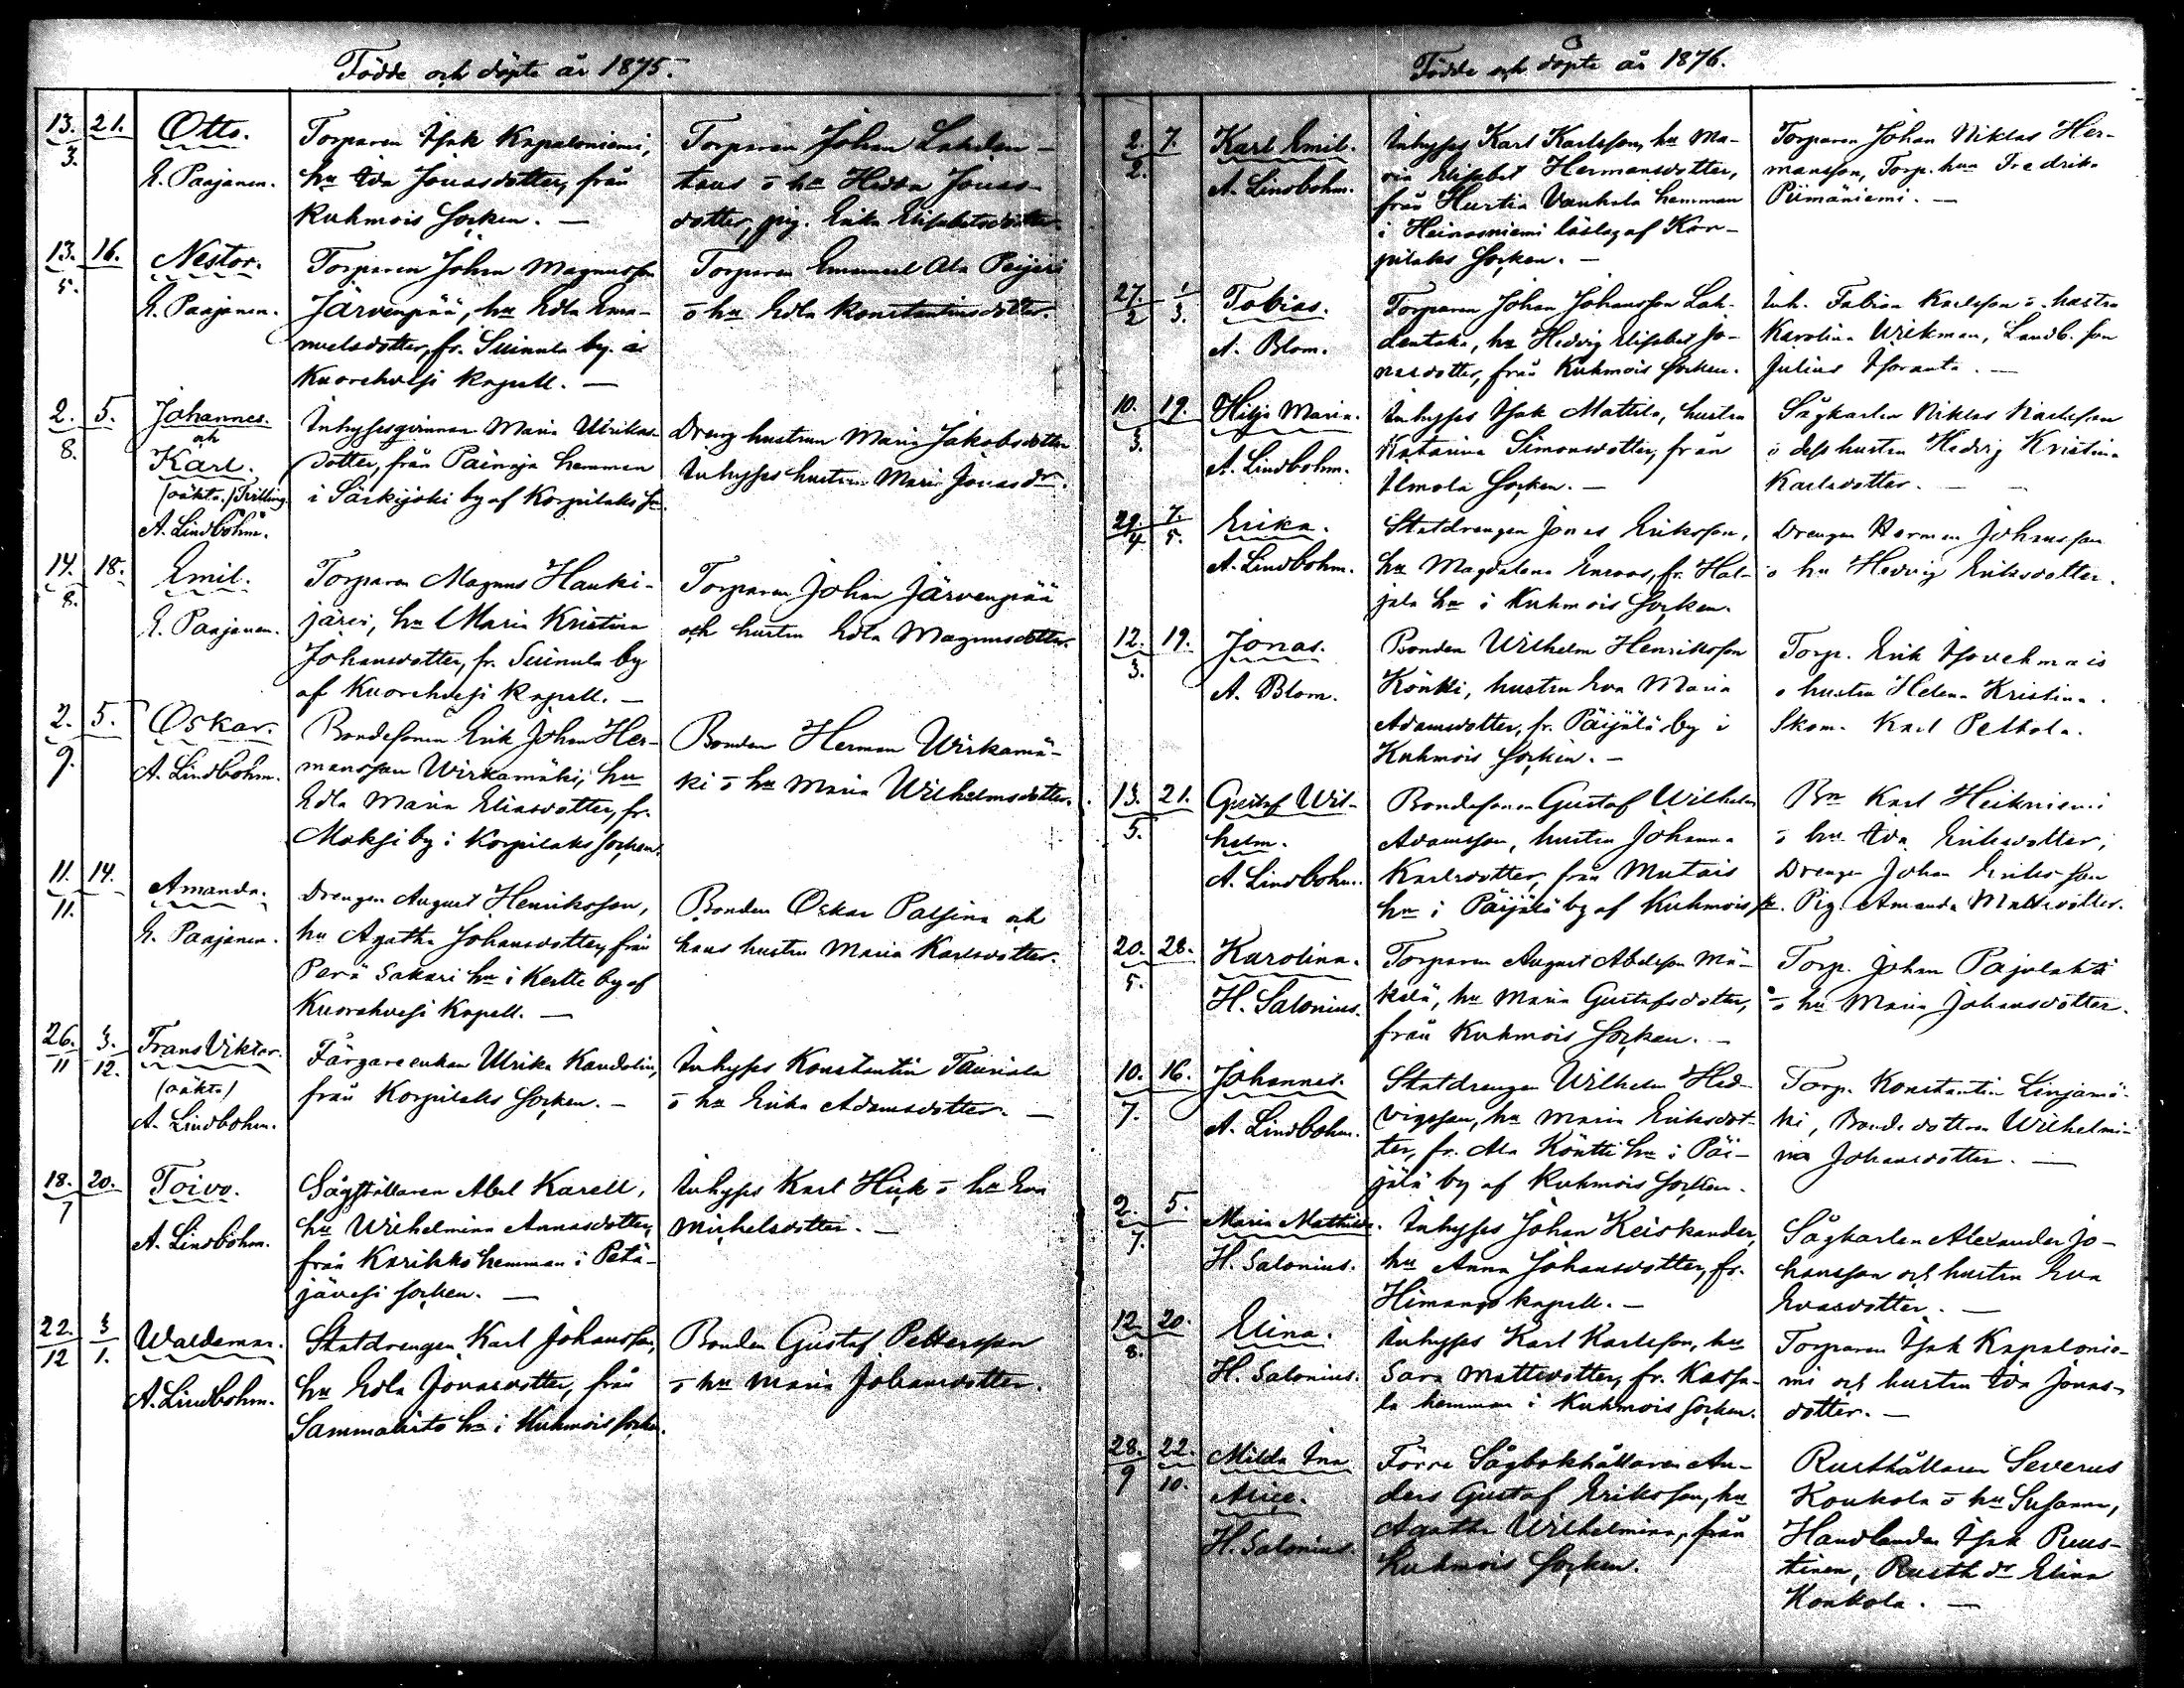 Födde och döpte år 1875.
13. 21. Otto. Torparen Isak Kapaloniemi, Torparen Johan Lahden-
3. E. Paajanen. hu Ida Jonasdotter, från taus o hu Hedda Jonas-
Kuhmois socken. — dotter, pig. Erika Elisabetsdotter.
13. 16. Nestor. Torparen Johan Magnusson Torparen Emanuel Ala Peijari
5. E. Paajanen. Järvenpää, hu Edla Ema- o hu Edla Konstantinsdotter.
nuelsdotter, fr. Suinula by. af
Kuorehvesi kapell. —
2. 5. Johannes. Inhysesqvinnan Maria Ulrikas- Dreng hustrun Maria Jakobsdotter
8. och dotter, från Painoja hemman Inhyses hustrun Maria Jonasdr.
Karl. i Särkijoki by af Korpilaks
(oäkta) Tvilling
A. Lindbohm.
14. 18. Emil. Torparen Magnus Hauki- Torparen Johan Järvenpää
8. E. Paajanen. järvi, hu Maria Kristina och hustrun Edla Magnusdotter.
Johansdotter, fr. Suinula by
af Kuorehvesi kapell. —
2. 5. Oskar. Bondesonen Erik Johan Her- Bonden Herman Wirkamä-
9. A. Lindbohm. mansson Wirkamäki, hu ki o hu Maria Wilhelmsdotter.
Edla Maria Eliasdotter, fr.
Moksi by i Korpilaks socken.
11. 14. Amanda. Drengen August Henriksson, Bonden Oskar Passina och
11. E. Paajanen. hu Agatha Johansdotter, från hans hustru Maria Karlsdotter.
Perä Sakari hn i Kertte by af
Kuorehvesi Kapell. —
26. 3. Frans Viktor. Färgareenkan Ulrika Kandolin, Inhyses Konstantin Tauriala
11 12. (oäkta) från Korpilaks socken. — o hu Erika Adamsdotter. —
A. Lindbohm.
18. 20. Toivo. Sågställaren Abel Karell, Inhyses Karl Hük o hu Eva
7 A. Lindbohm. hu Wilhelmina Annasdotter, Michelsdotter. —
från Karikko hemman i Petä-
jävesi socken. —
22. 3 Waldemar. Statdrengen Karl Johansson, Bonden Gustaf Pettersson
12 1. A. Lindbohm. hu Edla Jonasdotter, från o hu Maria Johansdotter.
Sammalisto hn i Kuhmois socken.
Födde och döpte år 1876.
2. 7. Karl Emil. Inhyses Karl Karlsson, hu Ma- Torparen Johan Niklas Her-
2. A. Lindbohm. ria Elisabet Hermansdotter, mansson, Torp. hun Fredrika
från Hurtia Vanhala hemman Piimäniemi. —
i Heinosniemi läslag af Kor-
pilaks socken. —
27. 1 Tobias. Torparen Johan Johansson Lah- Inh. Fabian Karlsson o hustru
2 3. A. Blom. dentaka, hu Hedvig Elisabet Jo- Karolina Wirkman, Landb. son
nasdotter, från Kuhmois socken. Julius Isoranta. —
10. 19. Hilja Maria. Inhyses Isak Mattila, hustru Sågkarlen Niklas Karlsson
3. A. Lindbohm. Katarina Simonsdotter, från o dess hustru Hedvig Kristina
Ilmola socken. — Karlsdotter. —
29. 7. Erika. Statdrengen Jonas Eriksson, Drengen Herman Johansson
4 5. A. Lindbohm. hu Magdalena Enroos, fr. Hal- o hu Hedvig Eriksdotter.
jala hn i Kuhmois socken.
12. 19. Jonas. Bonden Wilhelm Henriksson Torp. Erik Isovehmais
3. A. Blom. Könki, hustru Eva Maria o hustru Helena Kristina.
Adamsdotter, fr. Päijälä by i Skom. Karl Peltola.
Kuhmois socken. —
13. 21. Gustaf Wil- Bondesonen Gustaf Wilhelm Bn Karl Heikniemi
5. helm. Adamsson, hustru Johanna o hu Ida Eriksdotter,
A. Lindbohm. Karlsdotter, från Mutais Drengen Johan Eriksson
hn i Päijälä by af Kuhmois sn. Pig. Amanda Mattsdotter.
20. 28. Karolina. Torparen August Abelsson Mä- Torp. Johan Pajulahti
5. H. Salonius. kelä, hu Maria Gustafsdotter, o hu Maria Johansdotter.
från Kuhmois socken. —
10. 16. Johannes. Statdrengen Wilhelm Hed- Torp. Konstantin Linjamä-
7. A. Lindbohm. vigsson, hu Maria Eriksdot- ki, Bondedottren Wilhelmi-
ter, fr. Ala Köntti hn i Päi- na Johansdotter. —
jälä by af Kuhmois socken.
2. 5. Maria Mathilda. Inhyses Johan Keiskander, Sågkarlen Alexander Jo-
7. H. Salonius. hu Anna Johansdotter, fr. hansson och hustru Eva
Himango kapell. — Evasdotter. —
12 20. Elina. Inhyses Karl Karlsson, hu Torparen Isak Kapalonie-
8. H. Salonius. Sara Mattsdotter, fr. Kassa- mi och hustru Ida Jonas-
la hemman i Kuhmois socken. dotter. —
28. 22. Milda Ina Förre Sågbokhållaren An- Rusthållaren Severus
9 10. Alice. ders Gustaf Eriksson, hu Konkola o hu Susanna,
H. Salonius. Agatha Wilhelmina, från Handlanden Isak Ruus-
Kuhmois socken. tinen, Rusth dr Elina
Konkola. —